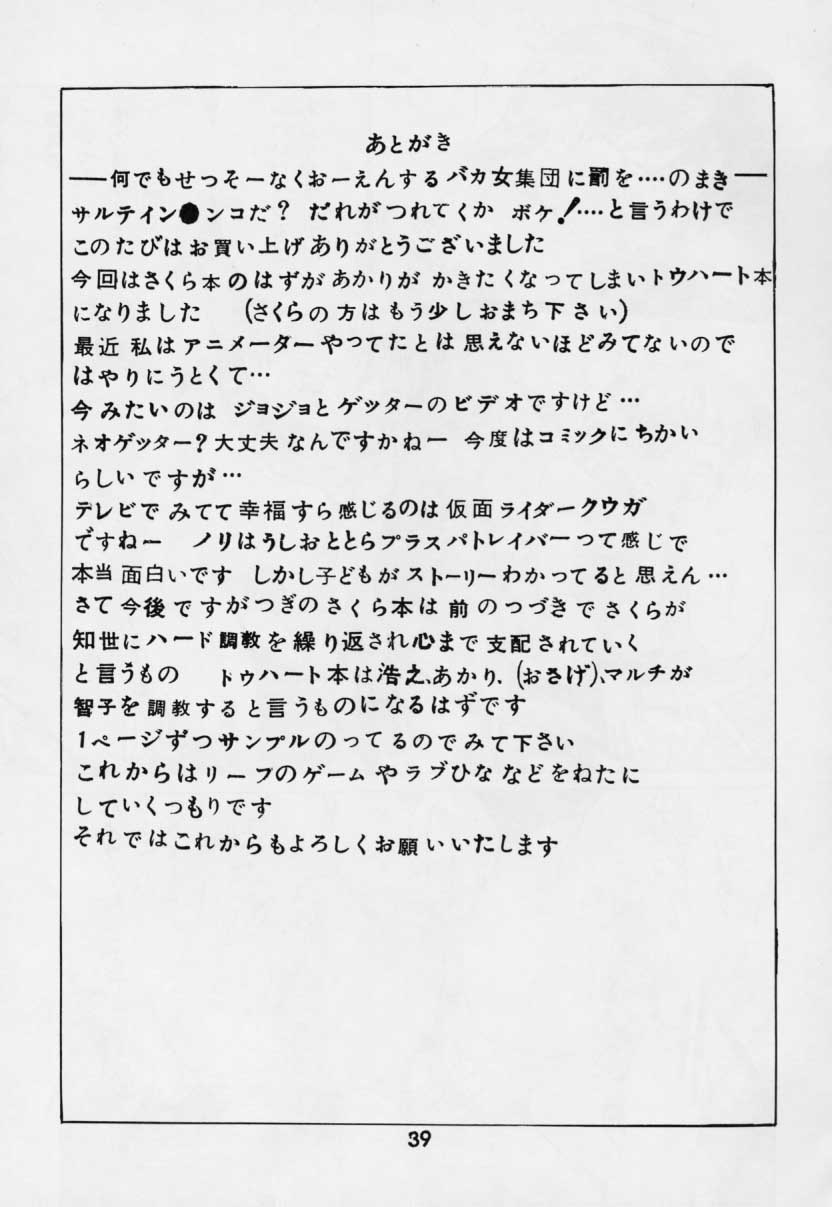 あとがき
──何でもせっそーなくおーえんするバカ女集団に罰を‥‥のまき─
サルティン●ンコだ？ だれがつれてくか ボケ！‥‥と言うわけで
このたびはお買い上げありがとうございました
今回はさくら本のはずがあかりが かきたくなってしまいトウハート本
になりました (さくらの方はもう少しおまち下さい)
最近 私はアニメーターやってたとは 思えないほどみてないので
はやりにうとくて…
今 みたいのは ジョジョとゲッターのビデオですけど…
ネオゲッター？大丈夫なんですかねー 今度はコミックにちかい
らしいですが…
テレビで みてて幸福すら感じるのは仮面ライダークウガ
ですねー ノリはうしおととらプラスパトレイバーって感じで
本当面白いです しかし子どもが ストーリーわかってると 思えん…
さて今後ですがつぎのさくら本は 前のつづきでさくらが
知世にハード調教を繰り返され心まで支配されていく
と言うもの トゥハート本は浩之、あかり、(おさげ)、マルチが
智子を調教すると言うものになるはずです
1ページずつサンプルのってるのでみて下さい
これからはリーフのゲームやラブひななどをねたに
していくつもりです
それではこれからもよろしくお願いいたします
39